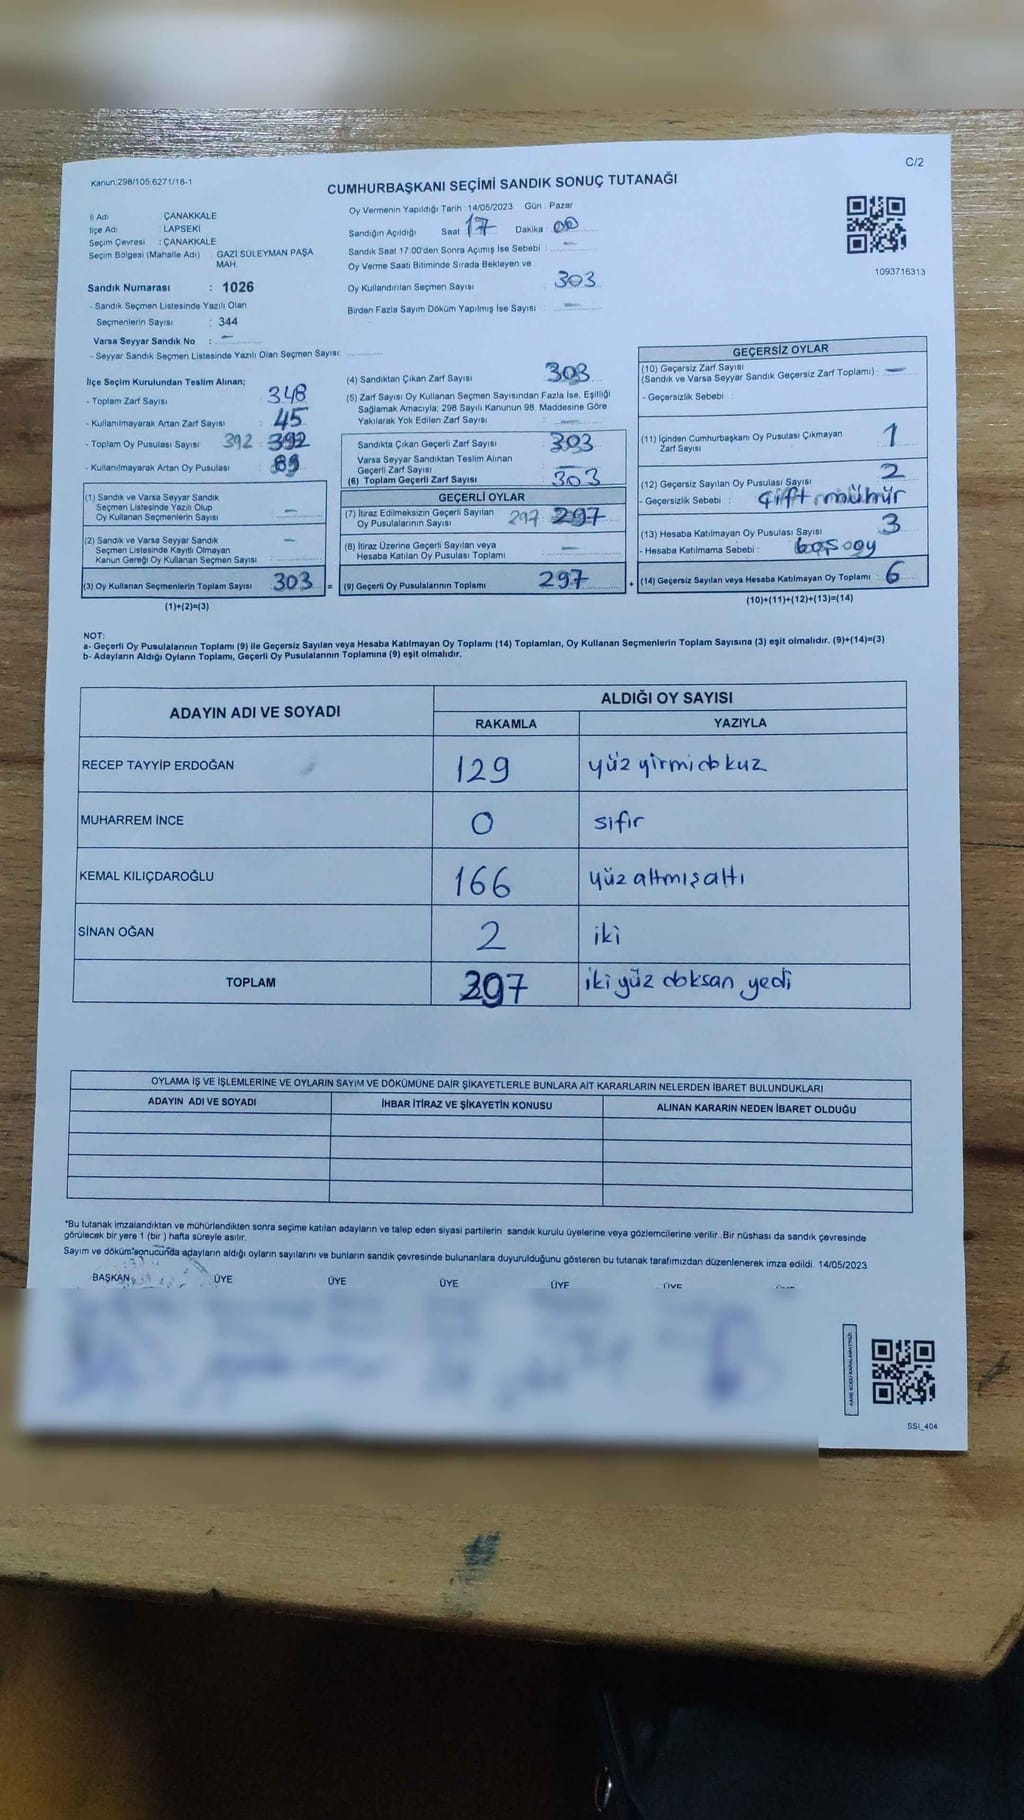 C/2
Kanun:298/105;6271/18-1
CUMHURBAŞKANI SEÇİMİ SANDIK SONUÇ TUTANAĞI
İl Adı : ÇANAKKALE
İlçe Adı : LAPSEKİ
Seçim Çevresi : ÇANAKKALE
Seçim Bölgesi (Mahalle Adı) GAZİ SÜLEYMAN PAŞA
MAH.
Sandık Numarası : 1026
- Sandık Seçmen Listesinde Yazılı Olan
Seçmenlerin Sayısı : 344
Varsa Seyyar Sandık No : —
- Seyyar Sandık Seçmen Listesinde Yazılı Olan Seçmen Sayısı:
Oy Vermenin Yapıldığı Tarih :14/05/2023 Gün : Pazar
Sandığın Açıldığı Saat 17 Dakika : 00
Sandık Saat 17:00'den Sonra Açımış İse Sebebi : —
Oy Verme Saati Bitiminde Sırada Bekleyen ve
Oy Kullandırılan Seçmen Sayısı : 303
Birden Fazla Sayım Döküm Yapılmış İse Sayısı : —
1093716313
İlçe Seçim Kurulundan Teslim Alınan;
- Toplam Zarf Sayısı : 348
- Kullanılmayarak Artan Zarf Sayısı : 45
- Toplam Oy Pusulası Sayısı 392 : 392
- Kullanılmayarak Artan Oy Pusulası : 89
(1) Sandık ve Varsa Seyyar Sandık
Seçmen Listesinde Yazılı Olup
Oy Kullanan Seçmenlerin Sayısı : —
(2) Sandık ve Varsa Seyyar Sandık
Seçmen Listesinde Kayıtlı Olmayan
Kanun Gereği Oy Kullanan Seçmen Sayısı : —
(3) Oy Kullanan Seçmenlerin Toplam Sayısı : 303 =
(1)+(2)=(3)
(4) Sandıktan Çıkan Zarf Sayısı : 303
(5) Zarf Sayısı Oy Kullanan Seçmen Sayısından Fazla İse, Eşitliği
Sağlamak Amacıyla, 298 Sayılı Kanunun 98. Maddesine Göre
Yakılarak Yok Edilen Zarf Sayısı : —
Sandıkta Çıkan Geçerli Zarf Sayısı : 303
Varsa Seyyar Sandıktan Teslim Alınan
Geçerli Zarf Sayısı : —
(6) Toplam Geçerli Zarf Sayısı : 303
GEÇERLİ OYLAR
(7) İtiraz Edilmeksizin Geçerli Sayılan
Oy Pusulalarının Sayısı 297 : 297
(8) İtiraz Üzerine Geçerli Sayılan veya
Hesaba Katılan Oy Pusulası Toplamı : —
(9) Geçerli Oy Pusulalarının Toplamı : 297 +
GEÇERSİZ OYLAR
(10) Geçersiz Zarf Sayısı
(Sandık ve Varsa Seyyar Sandık Geçersiz Zarf Toplamı) : —
- Geçersizlik Sebebi :
(11) İçinden Cumhurbaşkanı Oy Pusulası Çıkmayan
Zarf Sayısı : 1
(12) Geçersiz Sayılan Oy Pusulası Sayısı : 2
- Geçersizlik Sebebi : çift mühür
(13) Hesaba Katılmayan Oy Pusulası Sayısı : 3
- Hesaba Katılmama Sebebi : boş oy
(14) Geçersiz Sayılan veya Hesaba Katılmayan Oy Toplamı : 6
(10)+(11)+(12)+(13)=(14)
NOT:
a- Geçerli Oy Pusulalarının Toplamı (9) ile Geçersiz Sayılan veya Hesaba Katılmayan Oy Toplamı (14) Toplamları, Oy Kullanan Seçmenlerin Toplam Sayısına (3) eşit olmalıdır. (9)+(14)=(3)
b- Adayların Aldığı Oyların Toplamı, Geçerli Oy Pusulalarının Toplamına (9) eşit olmalıdır.
ADAYIN ADI VE SOYADI ALDIĞI OY SAYISI
RAKAMLA YAZIYLA
RECEP TAYYİP ERDOĞAN 129 yüz yirmidokuz
MUHARREM İNCE 0 sıfır
KEMAL KILIÇDAROĞLU 166 yüz altmışaltı
SİNAN OĞAN 2 iki
TOPLAM 297 iki yüz doksan yedi
OYLAMA İŞ VE İŞLEMLERİNE VE OYLARIN SAYIM VE DÖKÜMÜNE DAİR ŞİKAYETLERLE BUNLARA AİT KARARLARIN NELERDEN İBARET BULUNDUKLARI
ADAYIN ADI VE SOYADI İHBAR İTİRAZ VE ŞİKAYETİN KONUSU ALINAN KARARIN NEDEN İBARET OLDUĞU
*Bu tutanak imzalandıktan ve mühürlendikten sonra seçime katılan adayların ve talep eden siyasi partilerin sandık kurulu üyelerine veya gözlemcilerine verilir .Bir nüshası da sandık çevresinde
görülecek bir yere 1 (bir ) hafta süreyle asılır.
Sayım ve döküm sonucunda adayların aldığı oyların sayılarını ve bunların sandık çevresinde bulunanlara duyurulduğunu gösteren bu tutanak tarafımızdan düzenlenerek imza edildi. 14/05/2023
BAŞKAN ÜYE ÜYE ÜYE ÜYE ÜYE
SSI_404